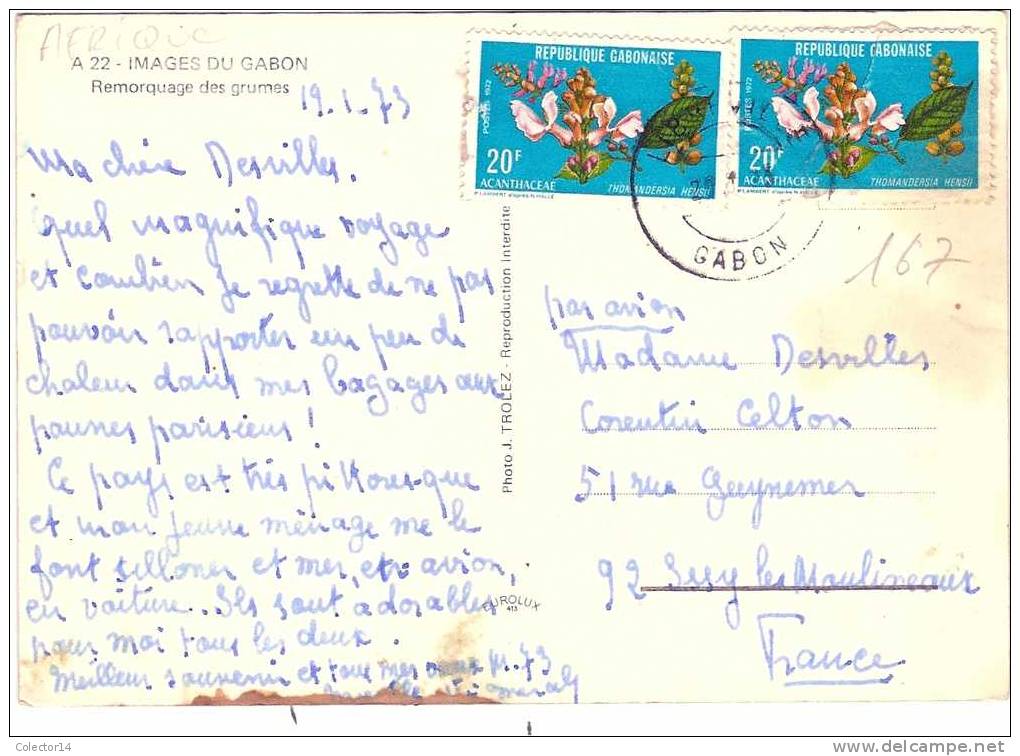 AFRIQUE
A 22 - IMAGES DU GABON
Remorquage des grumes
19.1.73
Ma chère Desvilles.
quel magnifique voyage
et combien je regrette de ne pas
pouvoir rapporter un peu de
chaleur dans mes bagages aux
pauvres parisiens !
Ce pays est très pittoresque
et mon jeune ménage me le
font sillonner et mer, en avion,
en voiture.. Ils sont adorables
pour moi tous les deux.
Meilleur souvenir et tous mes vœux pr. 73
Photo J. TROLEZ - Reproduction Interdite
EUROLUX
413
REPUBLIQUE GABONAISE
POSTES 1972
20F
ACANTHACEAE
THOMANDERSIA HENSII
P. LAMBERT d'après N. HALLE
REPUBLIQUE GABONAISE
POSTES 1972
20F
ACANTHACEAE
THOMANDERSIA HENSII
P. LAMBERT d'après N. HALLE
GABON
167
par avion
Madame Desvilles
Corentin Celton
51 rue Guynemer
92 Issy les Moulineaux
France
Colector14
www.delcampe.net